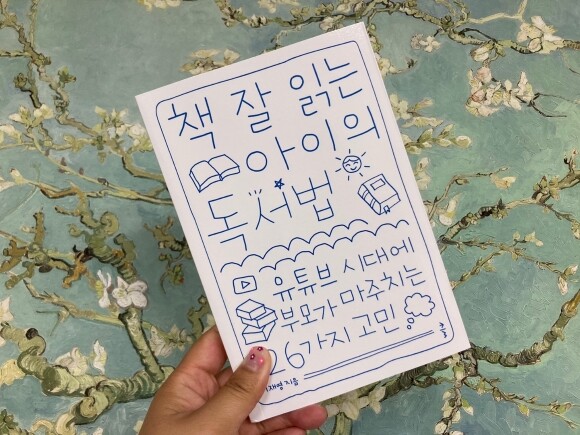 책 잘 읽는
아이의
독서법
유튜브 시대에
부모가 마주치는
26가지 고민
지음